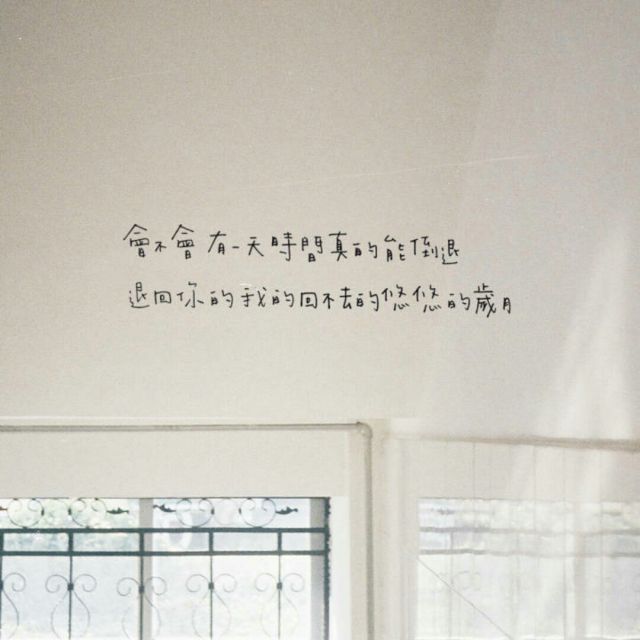 會不會有一天時間真的能倒退
退回你的我的回不去的悠悠的歲月